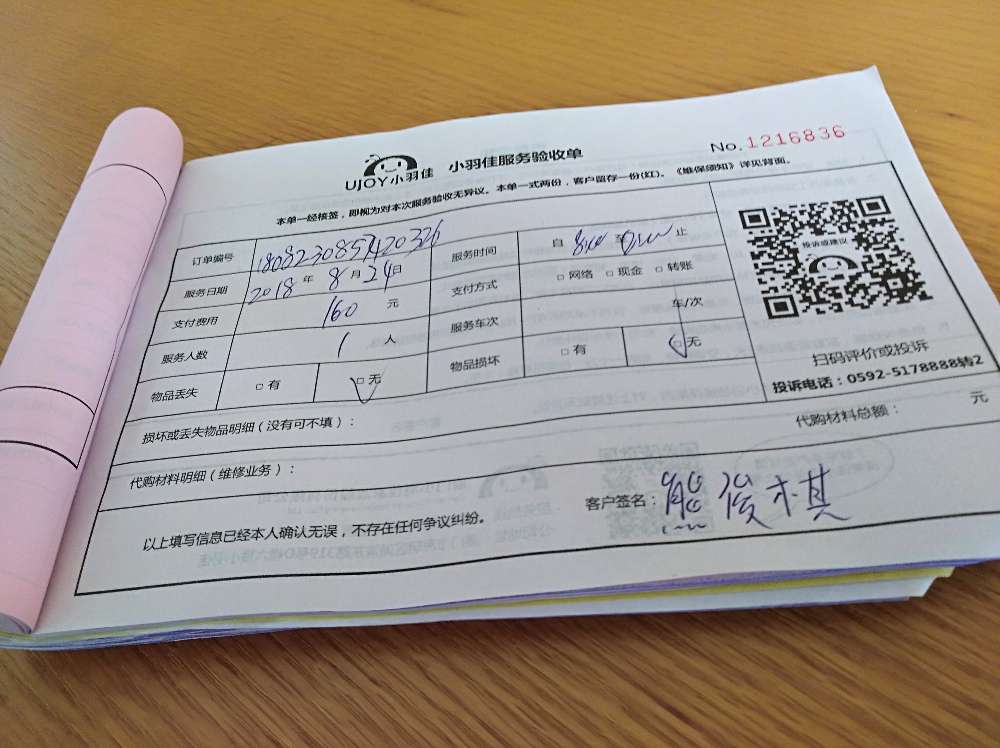 UJOY小羽佳 小羽佳服务验收单 No.1216836
本单一经核签,即视为对本次服务验收无异议。本单一式两份,客户留存一份(红)。《维保须知》详见背面。
订单编号 服务时间 自 至 止
服务日期 2018年8月24日 支付方式 □网络 □现金 □转账
支付费用 160 元 服务车次 车/次
服务人数 1 人 物品损坏 □有 □无
物品丢失 □有 □无
投诉或建议
扫码评价或投诉
投诉电话:0592-5178888转2
损坏或丢失物品明细(没有可不填):
代购材料明细(维修业务): 代购材料总额: 元
以上填写信息已经本人确认无误,不存在任何争议纠纷。 客户签名:熊俊棋